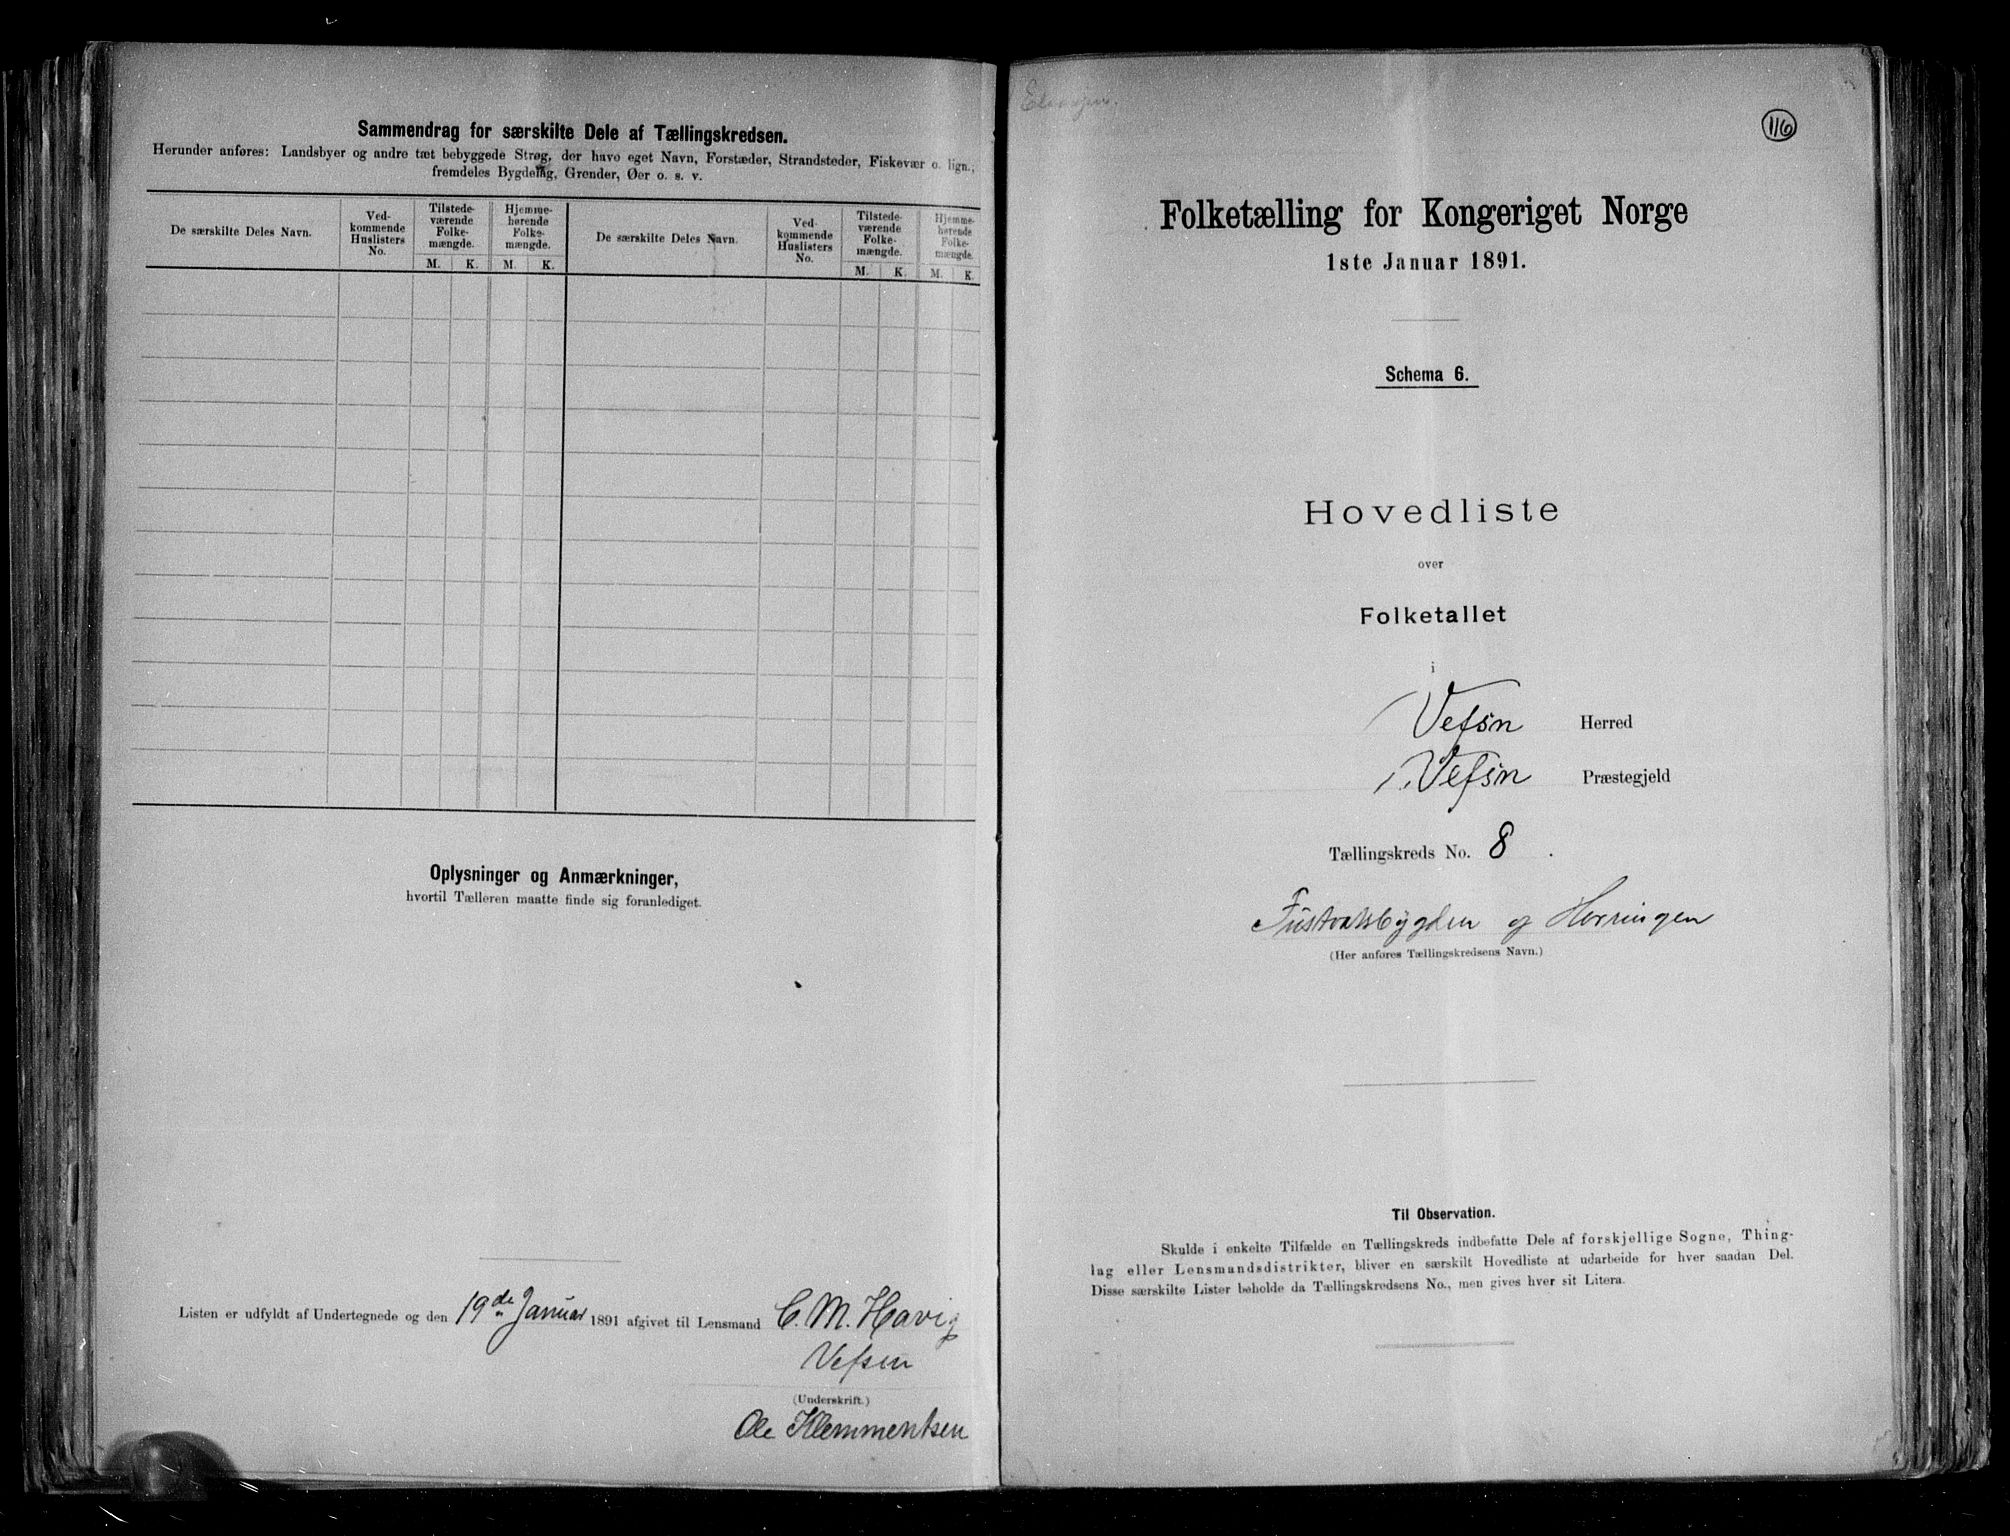 Sammendrag for særskilte Dele af Tællingskredsen.
Herunder anføres: Landsbyer og andre tæt bebyggede Strøg, der have eget Navn, Forstæder, Strandsteder, Fiskevær o. lign.;
fremdeles Bygdelag, Grender, Øer o. s. v.
De særskilte Deles Navn.
Ved-
kommende
Huslisters
No.
Tilstede-
værende
Folke-
mængde.
Hjemme-
hørende
Folke-
mængde.
M. K. M. K.
De særskilte Deles Navn.
Ved-
kommende
Huslisters
No.
Tilstede-
værende
Folke-
mængde.
Hjemme-
hørende
Folke-
mængde.
M. K. M. K.
Oplysninger og Anmærkninger,
hvortil Tælleren maatte finde sig foranlediget.
Listen er udfyldt af Undertegnede og den 19de Januar 1891 afgivet til Lensmand C. M. Havig
Vefsen
(Underskrift.)
Ole Klemmentsen
116
Folketælling for Kongeriget Norge
1ste Januar 1891.
Schema 6.
Hovedliste
over
Folketallet
i
Vefsn Herred
Vefsn Præstegjeld
Tællingskreds No. 8.
Fustvatsbygden og Herringen
(Her anføres Tællingskredsens Navn.)
Til Observation.
Skulde i enkelte Tilfælde en Tællingskreds indbefatte Dele af forskjellige Sogne, Thing-
lag eller Lensmandsdistrikter, bliver en særskilt Hovedliste at udarbeide for hver saadan Del.
Disse særskilte Lister beholde da Tællingskredsens No., men gives hver sit Litera.